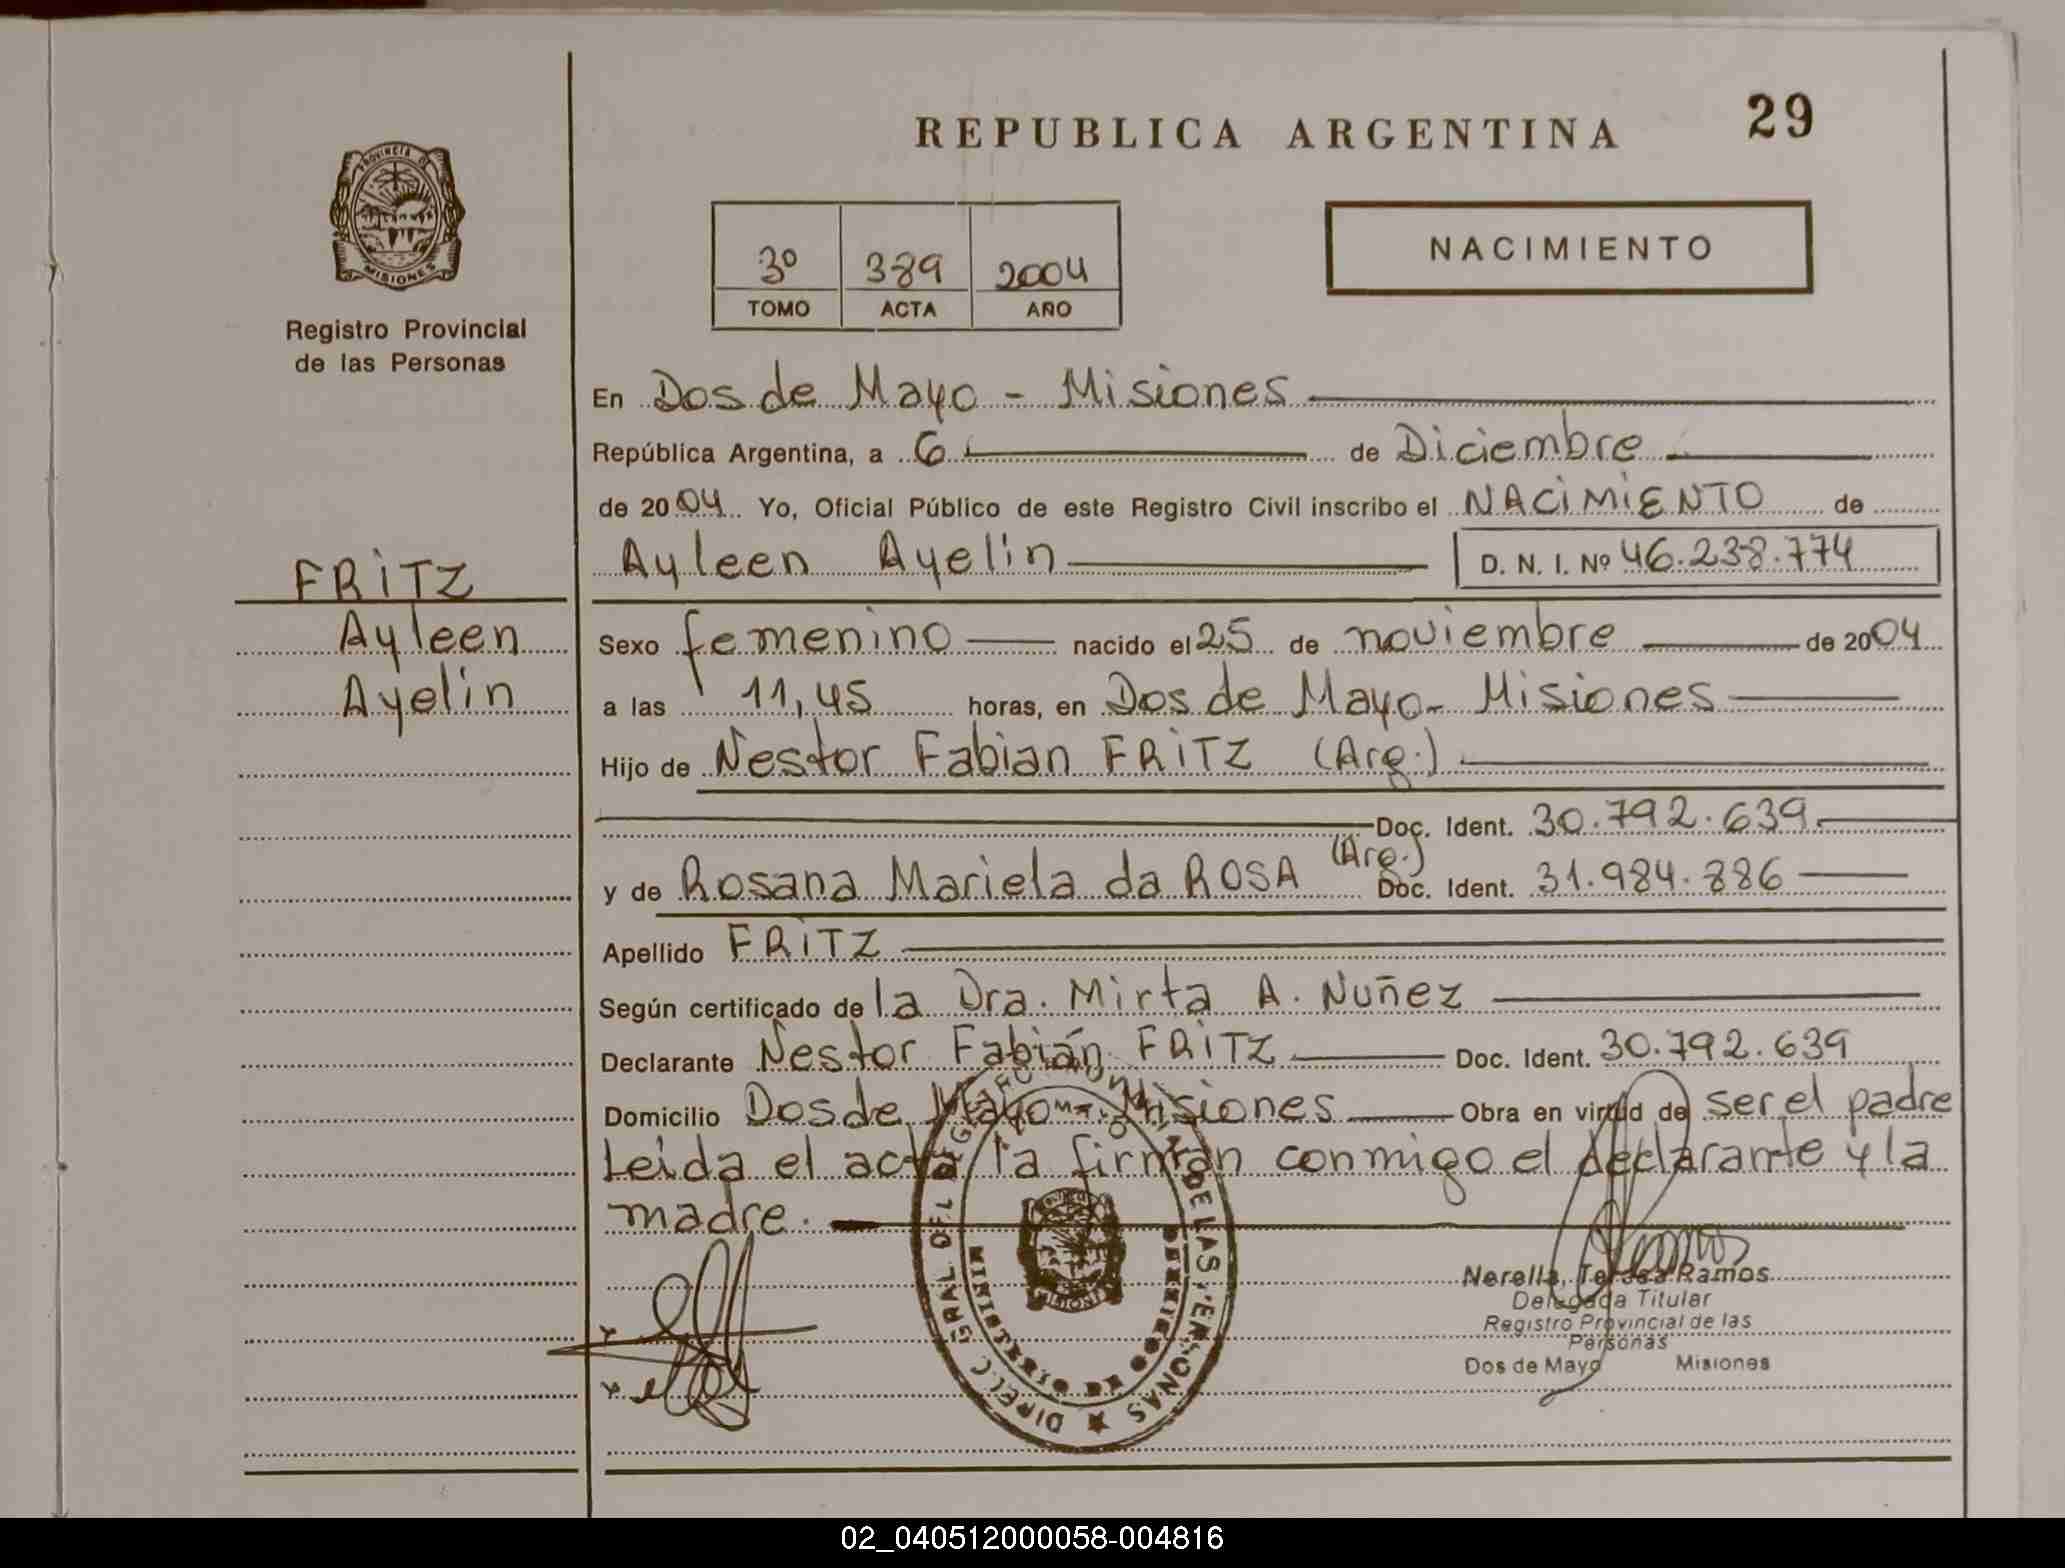 REPUBLICA ARGENTINA 29
PROVINCIA DE
MISIONES
Registro Provincial
de las Personas
3º 389 2004
TOMO ACTA AÑO
NACIMIENTO
En Dos de Mayo - Misiones
República Argentina, a 6 de Diciembre
de 2004 Yo, Oficial Público de este Registro Civil inscribo el NACIMIENTO de
Ayleen Ayelin D. N. I. Nº 46.238.774
FRITZ
Ayleen
Ayelin
Sexo femenino nacido el 25 de noviembre de 2004
a las 11,45 horas, en Dos de Mayo - Misiones
Hijo de Nestor Fabian FRITZ (Arg.)
Doc. Ident. 30.792.639
y de Rosana Mariela da ROSA (Arg.) Doc. Ident. 31.984.886
Apellido FRITZ
Según certificado de la Dra. Mirta A. Nuñez
Declarante Nestor Fabián FRITZ Doc. Ident. 30.792.639
Domicilio Dos de Mayo - Misiones Obra en virtud de ser el padre
Leida el acta, la firman conmigo el declarante y la
madre.
Nerella, Teresa Ramos
Delegada Titular
Registro Provincial de las
Personas
Dos de Mayo Misiones
02_040512000058-004816